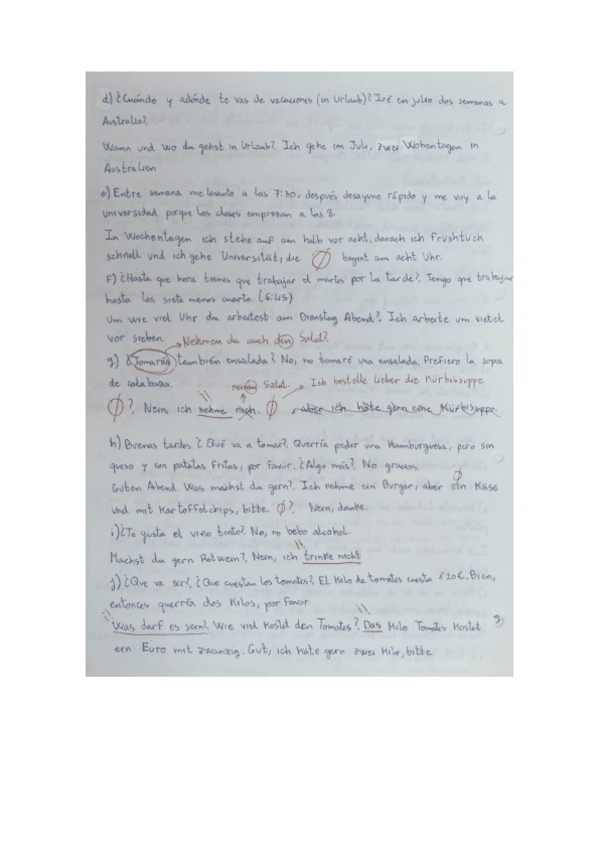 d) ¿Cuándo y adónde te vas de vacaciones (in Urlaub)? Iré en julio dos semanas a
Australia?.
Wann und wo du gehst in Urlaub?. Ich gehe im Juli, zwei Wohentagen in
Australien
e) Entre semana me levanto a las 7:30, después desayuno rápido y me voy a la
universidad, porque las clases empiezan a las 8.
In Wochentagen ich stehe auf am halb vor acht, danach ich Frushtuck
schnell und ich gehe Universität, die Ø begent am acht Uhr.
F) ¿Hasta que hora tienes que trabajar el martes por la tarde?. Tengo que trabajar
hasta las siete menos cuarto. (6:45)
Um wie viel Uhr du arbeitest am Dienstag Abend?. Ich arbeite um viertel
vor sieben.
Nehmen du auch den Salat?.
g) ¿Tomarás también ensalada? No, no tomaré una ensalada. Prefiero la sopa
de calabaza.
neinen Salat. Ich bestelle lieber die Kürbissuppe
Ø?. Nein, ich nehme mich. Ø aber ich häte gern eine Mürbisuppe.
h) Buenas tardes ¿Qué va a tomar?. Querría pedir una Hamburguesa, pero sin
queso y con patatas Fritas, por Favor. ¿Algo más?. No gracias.
Guten Abend. Was machst du gern?. Ich nehme ein Burger, aber sin Käse
Ø
und mit Kartoffelchips, bitte. Ø?. Nein, danke.
i) ¿Te gusta el vino tinto?. No, no bebo alcohol.
Machst du gern Rotwein?. Nein, ich trinke nicht
j) ¿Que va ser?, ¿Que cuestan los tomates?. El Kilo de tomates cuesta 1'20€. Bien,
entonces querría dos Kilos, por Favor.
Was darf es sein? Wie viel Kostet den Tomates?. Das Kilo Tomates Kostet
ein Euro mit zwanzig. Gut, ich häte gern zwei Kilo, bitte